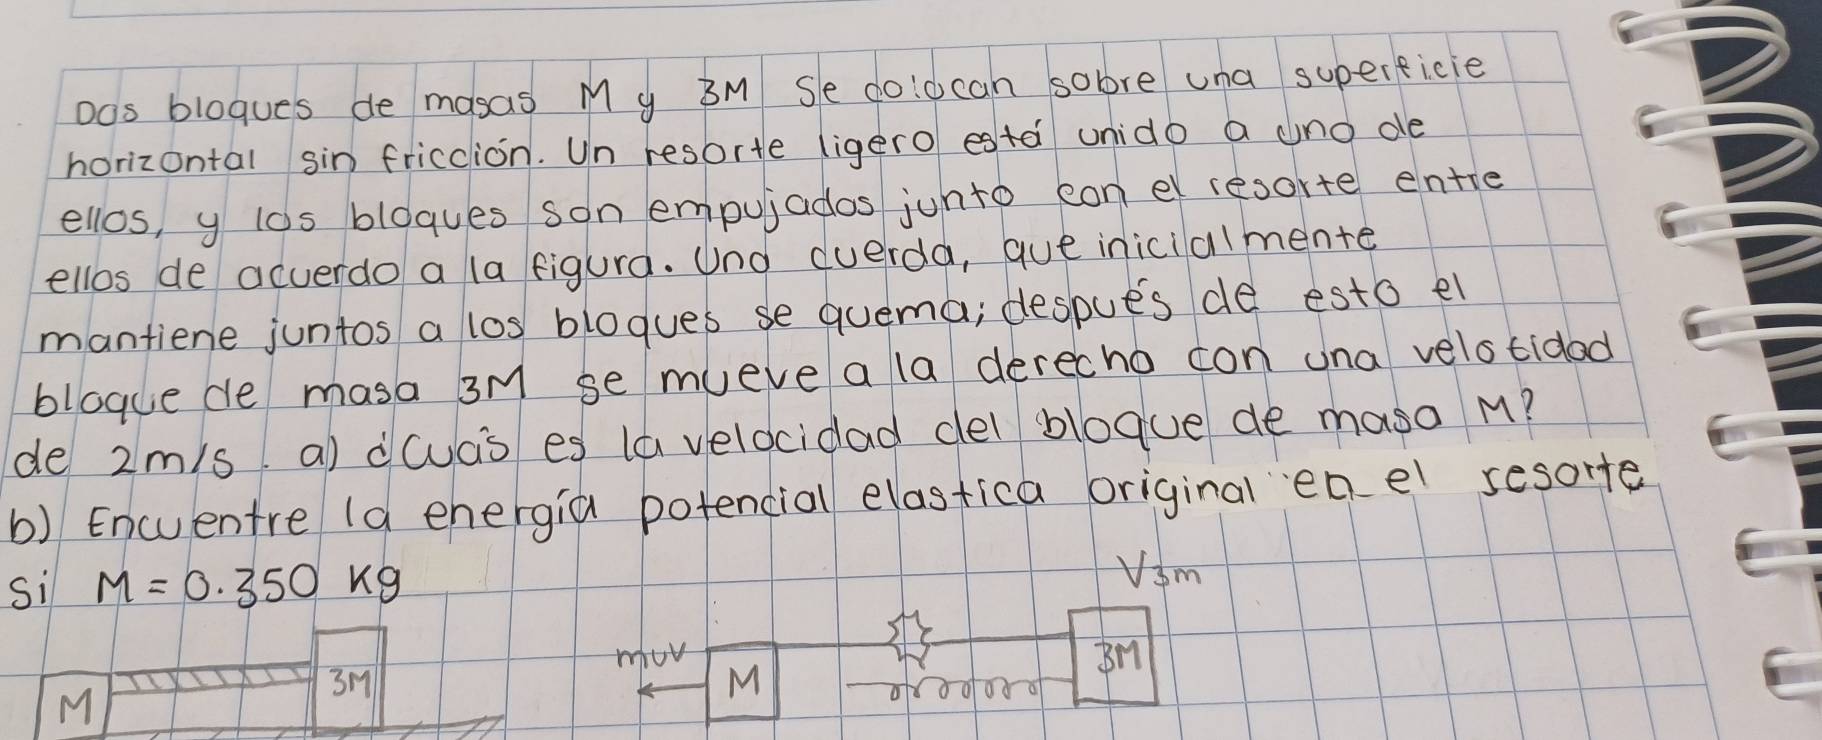 Dos bloques de masas M y 3M Se colocan sobre una superficie
horizontal sin fricción. Un resorte ligero está unido a uno de
ellos, y los bloques son empujados junto con el resorte entre
ellos de acuerdo a la figura. Una cuerda, que inicialmente
mantiene juntos a los bloques se quema; después de esto el
bloque de masa 3M se mueve a la derecha con una velocidad
de 2m/s. a) ¿Cuás es la velocidad del bloque de masa M?
b) Encuentre la energía potencial elastica original en el resorte
si M = 0.350 kg
V3m
muv
M 3M M 3M